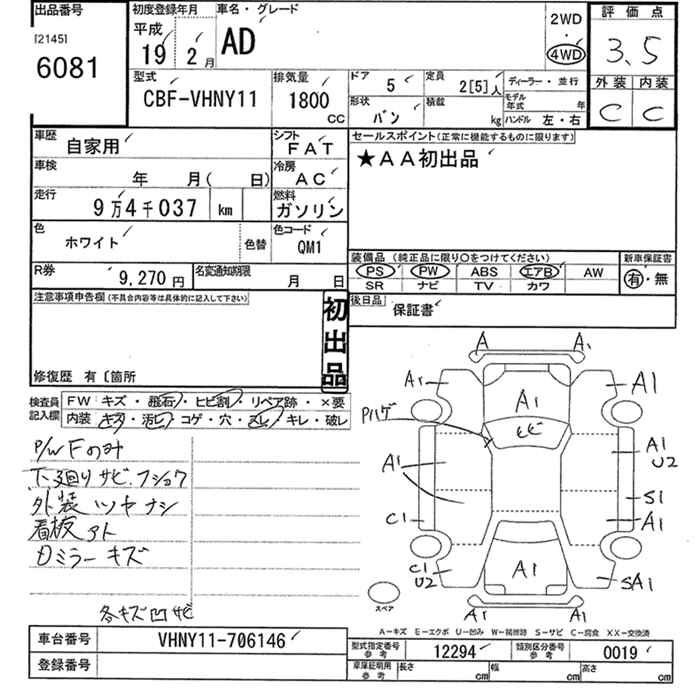 出品番号 初度登録年月 車名・グレード 2WD 評価点
[2145] 平成 AD ・
6081 19 2月 4WD 3.5
型式 排気量 ドア 5 定員 2[5]人 ディーラー・並行 外装 内装
CBF-VHNY11 1800 CC 形状 バン 積載 kg モデル年式 年 ハンドル 左・右 C C
車歴 自家用 シフト FAT セールスポイント(正常に機能するものに限ります)
車検 年 月( 日) 冷房 AC ★AA初出品
走行 9万4千037 km 燃料 ガソリン
色 ホワイト 色替 色コード QM1 装備品(純正品に限り○をつけてください) 新車保証書
PS PW ABS エアB AW 有・無
R券 9,270円 名変通知期限 月 日 SR ナビ TV カワ
注意事項申告欄(不具合内容等は具体的に記入して下さい) 初出品 後日品 保証書
修復歴 有〔箇所
検査員記入欄 FW キズ・飛石・ヒビ割・リペア跡・×要
内装 キタ・汚レ・コゲ・穴・スレ・キレ・破レ
P/W Fのみ
下廻りサビ、フショク
外装 ツヤナシ
看板アト
Dミラーキズ
各キズ凹サビ
A A1
A1 A1 A1
Pハゲ ヒビ
A1 A1 U2
S1
C1 A1
C1 U2 A1 SA1
スペア A1 A1
A-キズ E-エクボ U-凹み W-補修跡 S-サビ C-腐食 XX-交換済
車台番号 VHNY11-706146 型式指定番号 参考 12294 類別区分番号 参考 0019
登録番号 車庫証明用 参考 長さ cm 幅 cm 高さ cm